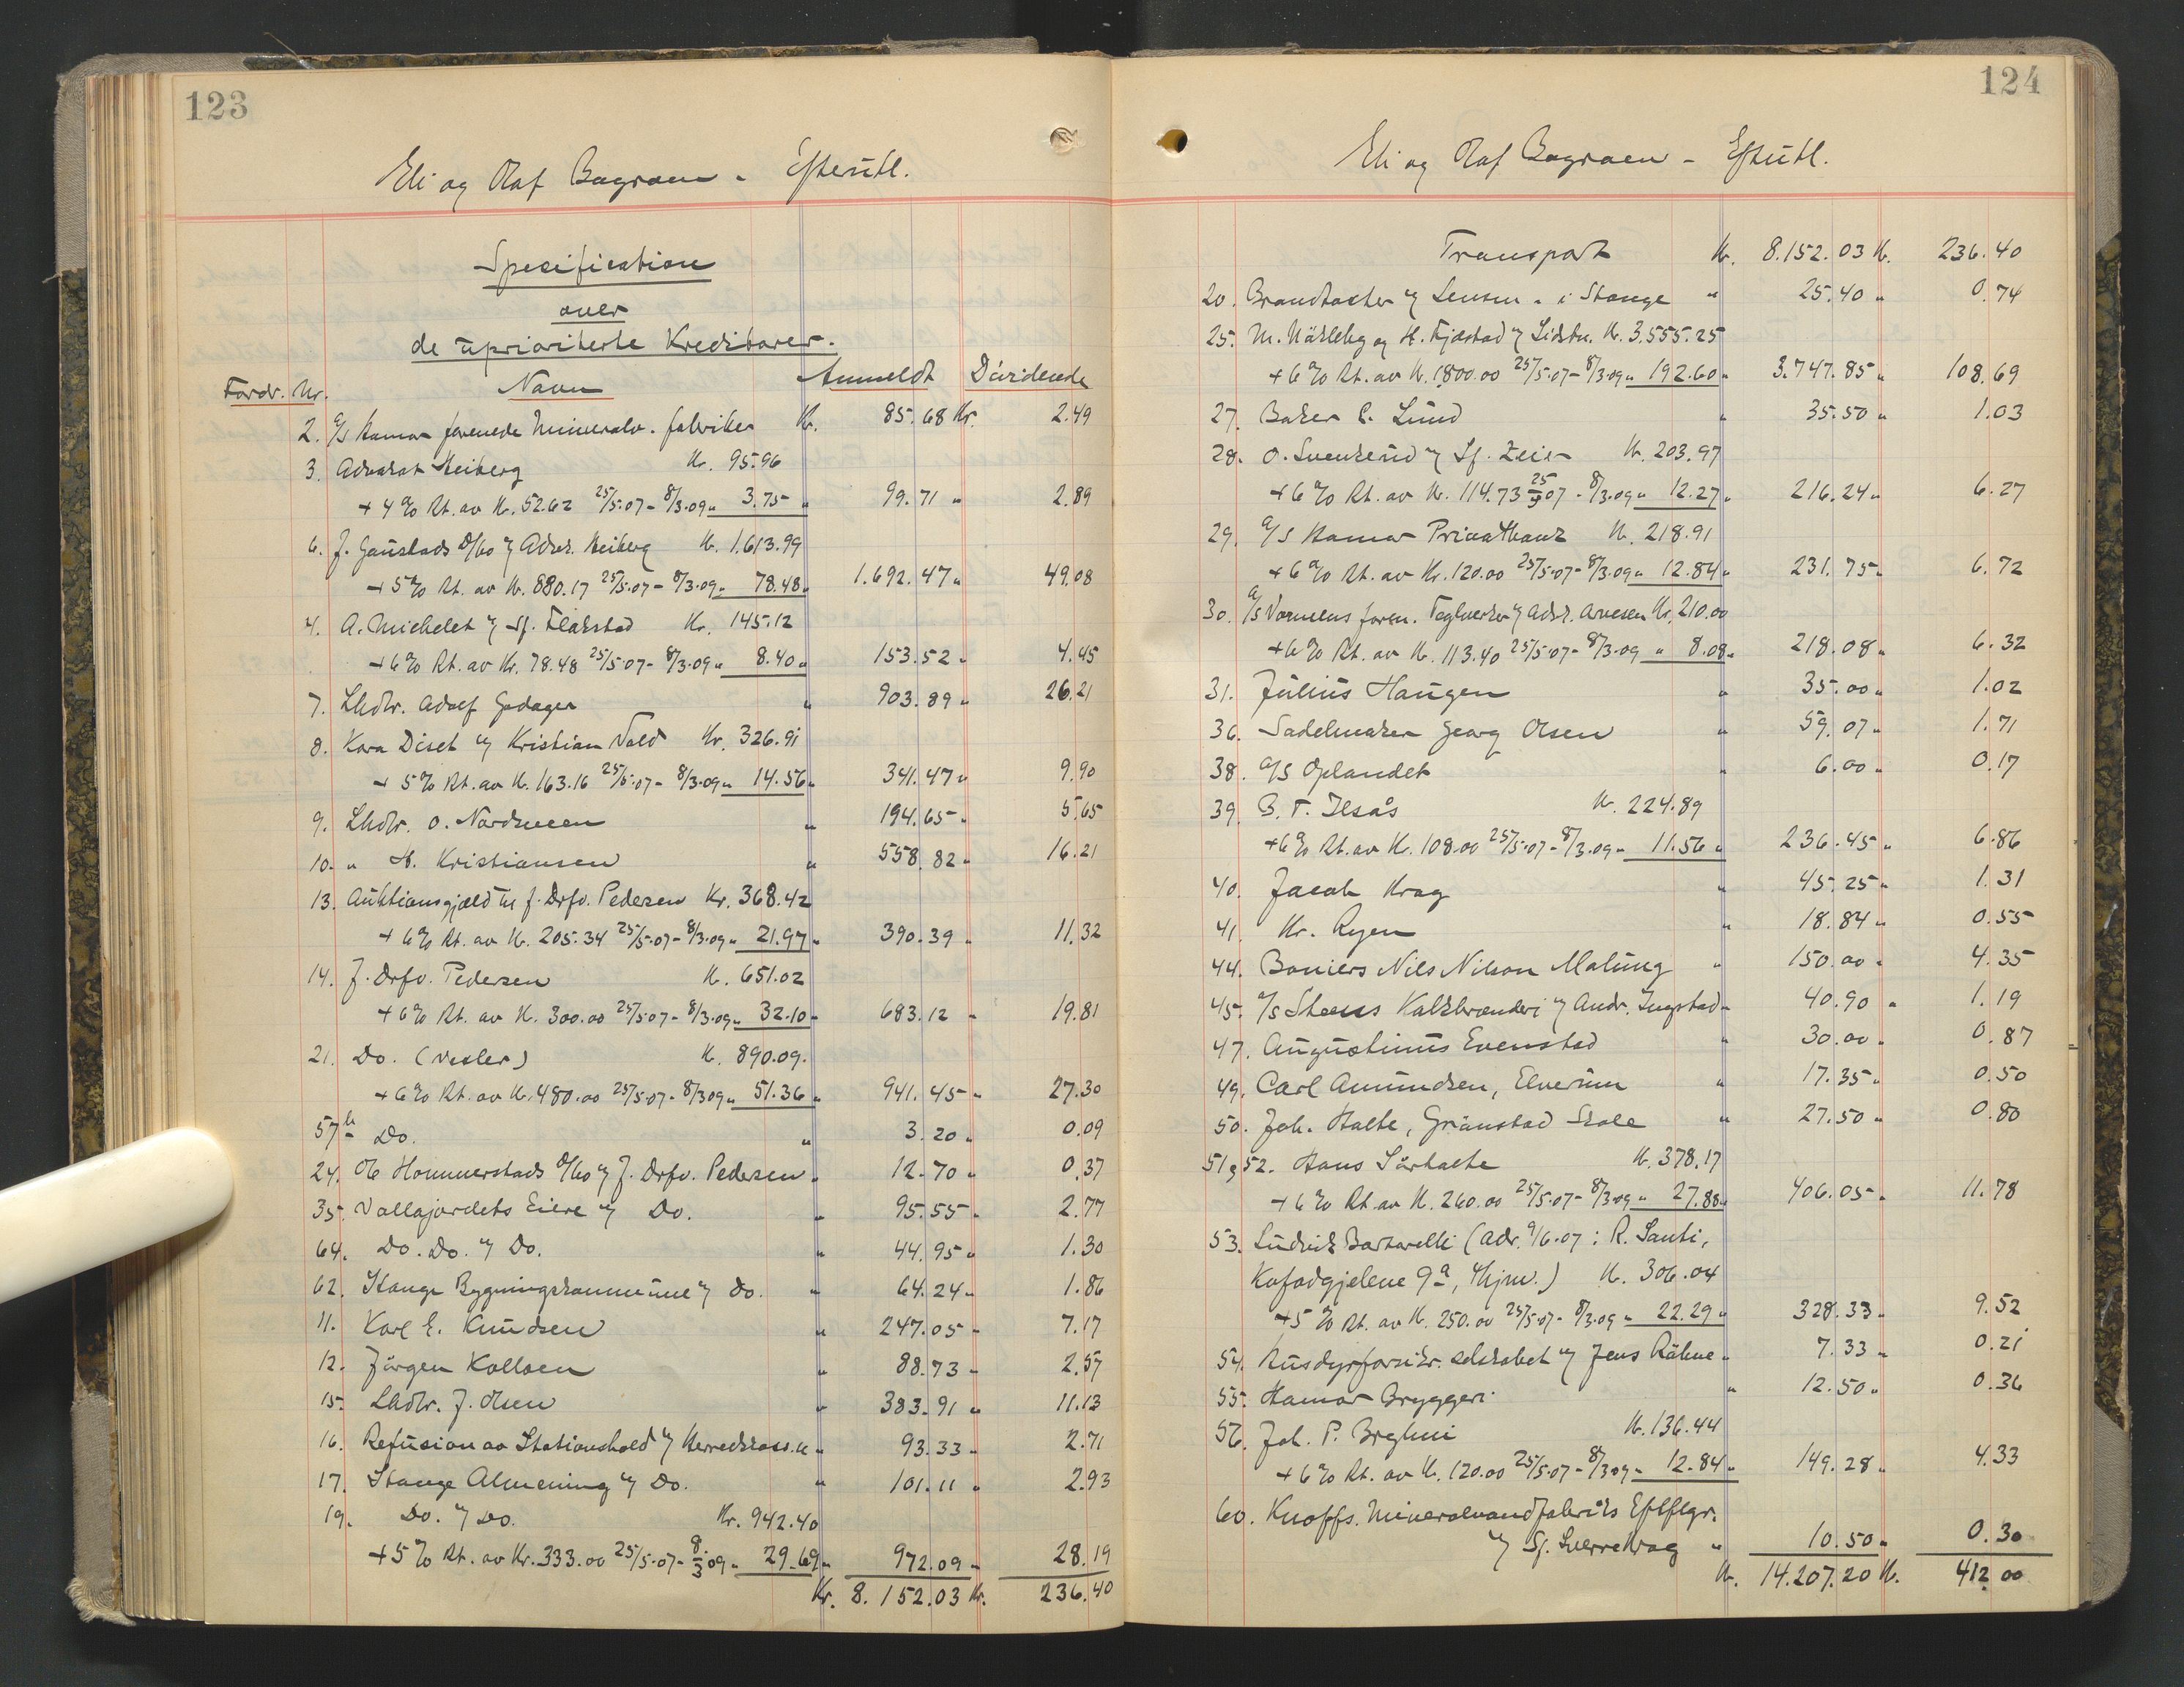 123
Eli og Olaf Bagraen - Efterutl.
Specification
over
de uprioriterte Kreditorer.
Fordr. Nr. Navn Anmeldt Dividende
2. A/S Hamar forenede Mineralv. fabriker Kr. 85.68 Kr. 2.49
3. Advokat Heiberg Kr. 95.96
+ 4% Rt. av Kr. 52.62 25/5.07 - 8/3.09 " 3.75 " 99.71 " 2.89
6. J. Gaustads D/bo v/ Adv. Heiberg Kr. 1.613.99
+ 5% Rt. av Kr. 880.17 25/5.07 - 8/3.09 " 78.48 " 1.692.47 " 49.08
4. A. Michelet v/ Sf. Flakstad Kr. 145.12
+ 6% Rt. av Kr. 78.48 25/5.07 - 8/3.09 " 8.40 " 153.52 " 4.45
7. Lhdlr. Adolf Godager " 903.89 " 26.21
8. Kara Diset v/ Kristian Vold Kr. 326.91
+ 5% Rt. av Kr. 163.16 25/5.07 - 8/3.09 " 14.56 " 341.47 " 9.90
9. Lhdlr. O. Nordmoen " 194.65 " 5.65
10. " H. Kristiansen " 558.82 " 16.21
13. Auktionsgjæld til f. Drfv. Pedersen Kr. 368.42
+ 6% Rt. av Kr. 205.34 25/5.07 - 8/3.09 " 21.97 " 390.39 " 11.32
14. f. Drfv. Pedersen Kr. 651.02
+ 6% Rt. av Kr. 300.00 25/5.07 - 8/3.09 " 32.10 " 683.12 " 19.81
21. Do. (vexler) Kr. 890.09.
+ 6% Rt. av Kr. 480.00 25/5.07 - 8/3.09 " 51.36 " 941.45 " 27.30
57b Do. " 3.20 " 0.09
24. Ole Hommerstads D/bo v/ f. Drfv. Pedersen " 12.70 " 0.37
35. Vallajordets Eiere v/ Do. " 95.55 " 2.77
64. Do. Do. v/ Do. " 44.95 " 1.30
62. Stange Bygningskommune v/ Do. " 64.24 " 1.86
11. Karl E. Knudsen " 247.05 " 7.17
12. Jörgen Kolloen " 88.73 " 2.57
15. Lhdlr. J. Olsen " 383.91 " 11.13
16. Refusion av Stationshold v/ Herredskass. " 93.33 " 2.71
17. Stange Almenning v/ Do. " 101.11 " 2.93
19. Do. v/ Do. Kr. 942.40
+ 5% Rt. av Kr. 333.00 25/5.07 - 8/3 09 " 29.69 " 972.09 " 28.19
Kr. 8.152.03 Kr. 236.40
124
Eli og Olaf Bagraen - Efterutl.
Transport Kr. 8.152.03 Kr. 236.40
20. Brandkasten v/ Lensm. i Stange " 25.40 " 0.74
25. M. Näkleby og H. Fjæstad v/ Lidstr. Kr. 3.555.25
+ 6% Rt. av Kr. 1800.00 25/5.07 - 8/3.09 " 192.60 " 3.747.85 " 108.69
27. Baker C. Lund " 35.50 " 1.03
28. O. Svenkerud v/ Sf. Zeier Kr. 203.97
+ 6% Rt. av Kr. 114.73 25/5 07 - 8/3.09 " 12.27 " 216.24 " 6.27
29. A/S Hamar Privatbank Kr. 218.91
+ 6% Rt. av Kr. 120.00 25/5.07 - 8/3.09 " 12.84 " 231.75 " 6.72
30. A/S Vormens foren. Teglverker v/ Adv. Arnesen Kr. 210.00
+ 6% Rt. av Kr. 113.40 25/5.07 - 8/3.09 " 8.08 " 218.08 " 6.32
31. Julius Haugen " 35.00 " 1.02
36. Sadelmaker Georg Olsen " 59.07 " 1.71
38. A/S Oplandet " 6.00 " 0.17
39. B. T. Ilsås Kr. 224.89
+ 6% Rt. av Kr. 108.00 25/5.07 - 8/3.09 " 11.56 " 236.45 " 6.86
40. Jacob Krag " 45.25 " 1.31
41. Kr. Ryen " 18.84 " 0.55
44. Boniers Nils Nilson Malung " 150.00 " 4.35
45. A/S Steens Kalkbrænderi v/ Andr. Ingstad " 40.90 " 1.19
47. Augustinus Evenstad " 30.00 " 0.87
49. Carl Amundsen, Elverum " 17.35 " 0.50
50. Joh. Halte, Grånstad Skole " 27.50 " 0.80
51 & 52. Hans Sörhalte Kr. 378.17
+ 6% Rt. av Kr. 260.00 25/5.07 - 8/3.09 " 27.88 " 406.05 " 11.78
53. Ludvik Bartarelli (adr. 9/6.07: R. Santi,
Kofodgjelene 9a, Khjvn.) Kr. 306.04
+ 5% Rt. av Kr. 250.00 25/5.07 - 8/3.09 " 22.29 " 328.33 " 9.52
54. Husdyrforsikr. selskabet v/ Jens Råhne " 7.33 " 0.21
55. Hamar Bryggeri " 12.50 " 0.36
56. Joh. P. Bryhni Kr. 136.44
+ 6% Rt. av Kr. 120.00 25/5.07 - 8/3.09 " 12.84 " 149.28 " 4.33
60. Knoffs. Mineralvandfabriks Eftflgr.
v/ Sf. Sverre Krag " 10.50 " 0.30
Kr. 14.207.20 Kr. 412.00